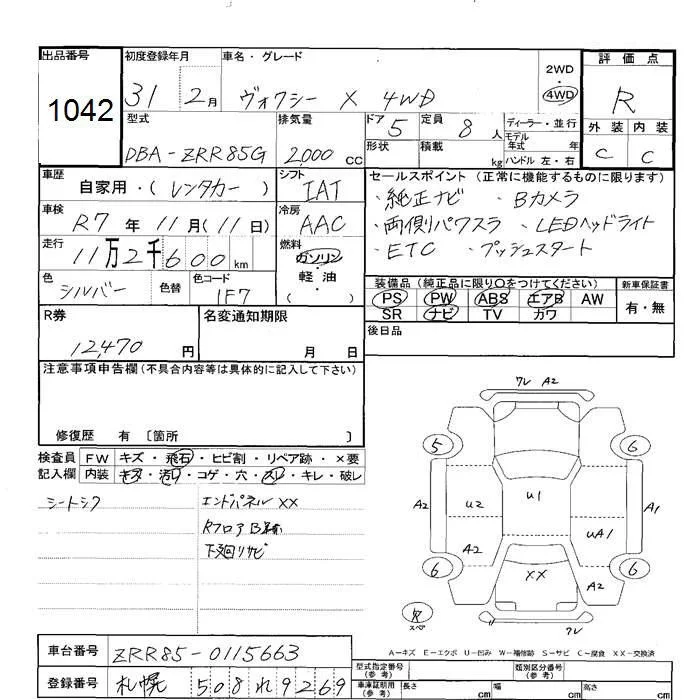 出品番号 初度登録年月 車名・グレード 評価点
1042 31 2月 ヴォクシー X 4WD 2WD・4WD R
型式 排気量 ドア 5 定員 8人 ディーラー・並行 外装 内装
DBA-ZRR85G 2,000 CC 形状 積載 kg モデル年式 年 ハンドル 左・右 C C
車歴 自家用・(レンタカー) シフト IAT セールスポイント(正常に機能するものに限ります)
・純正ナビ ・Bカメラ
車検 R7年 11月(11日) 冷房 AAC ・両側パワスラ ・LEDヘッドライト
走行 11万2千600km 燃料 ガソリン・軽油・( ) ・ETC ・プッシュスタート
色 シルバー 色替 色コード 1F7
装備品(純正品に限り○をつけてください) 新車保証書
PS PW ABS エアB AW 有・無
SR ナビ TV カワ
R券 12,470円 名変通知期限 月 日 後日品
注意事項申告欄(不具合内容等は具体的に記入して下さい)
修復歴 有 〔箇所 〕
検査員 FW キズ・飛石・ヒビ割・リペア跡・×要
記入欄 内装 キズ・汚れ・コゲ・穴・スレ・キレ・破レ
シートシワ エンドパネルXX
Rフロア
下廻リサビ
ワレ A2
5 6
A2 U2 U1 A1
A2 UA1
6 XX A2 6
スペア ワレ
A-キズ E-エクボ U-凹み W-補修跡 S-サビ C-腐食 XX-交換済
車台番号 ZRR85-0115663
登録番号 札幌 508れ9269
型式指定番号(参考) 類別区分番号(参考)
車庫証明用(参考) 長さ cm 幅 cm 高さ cm